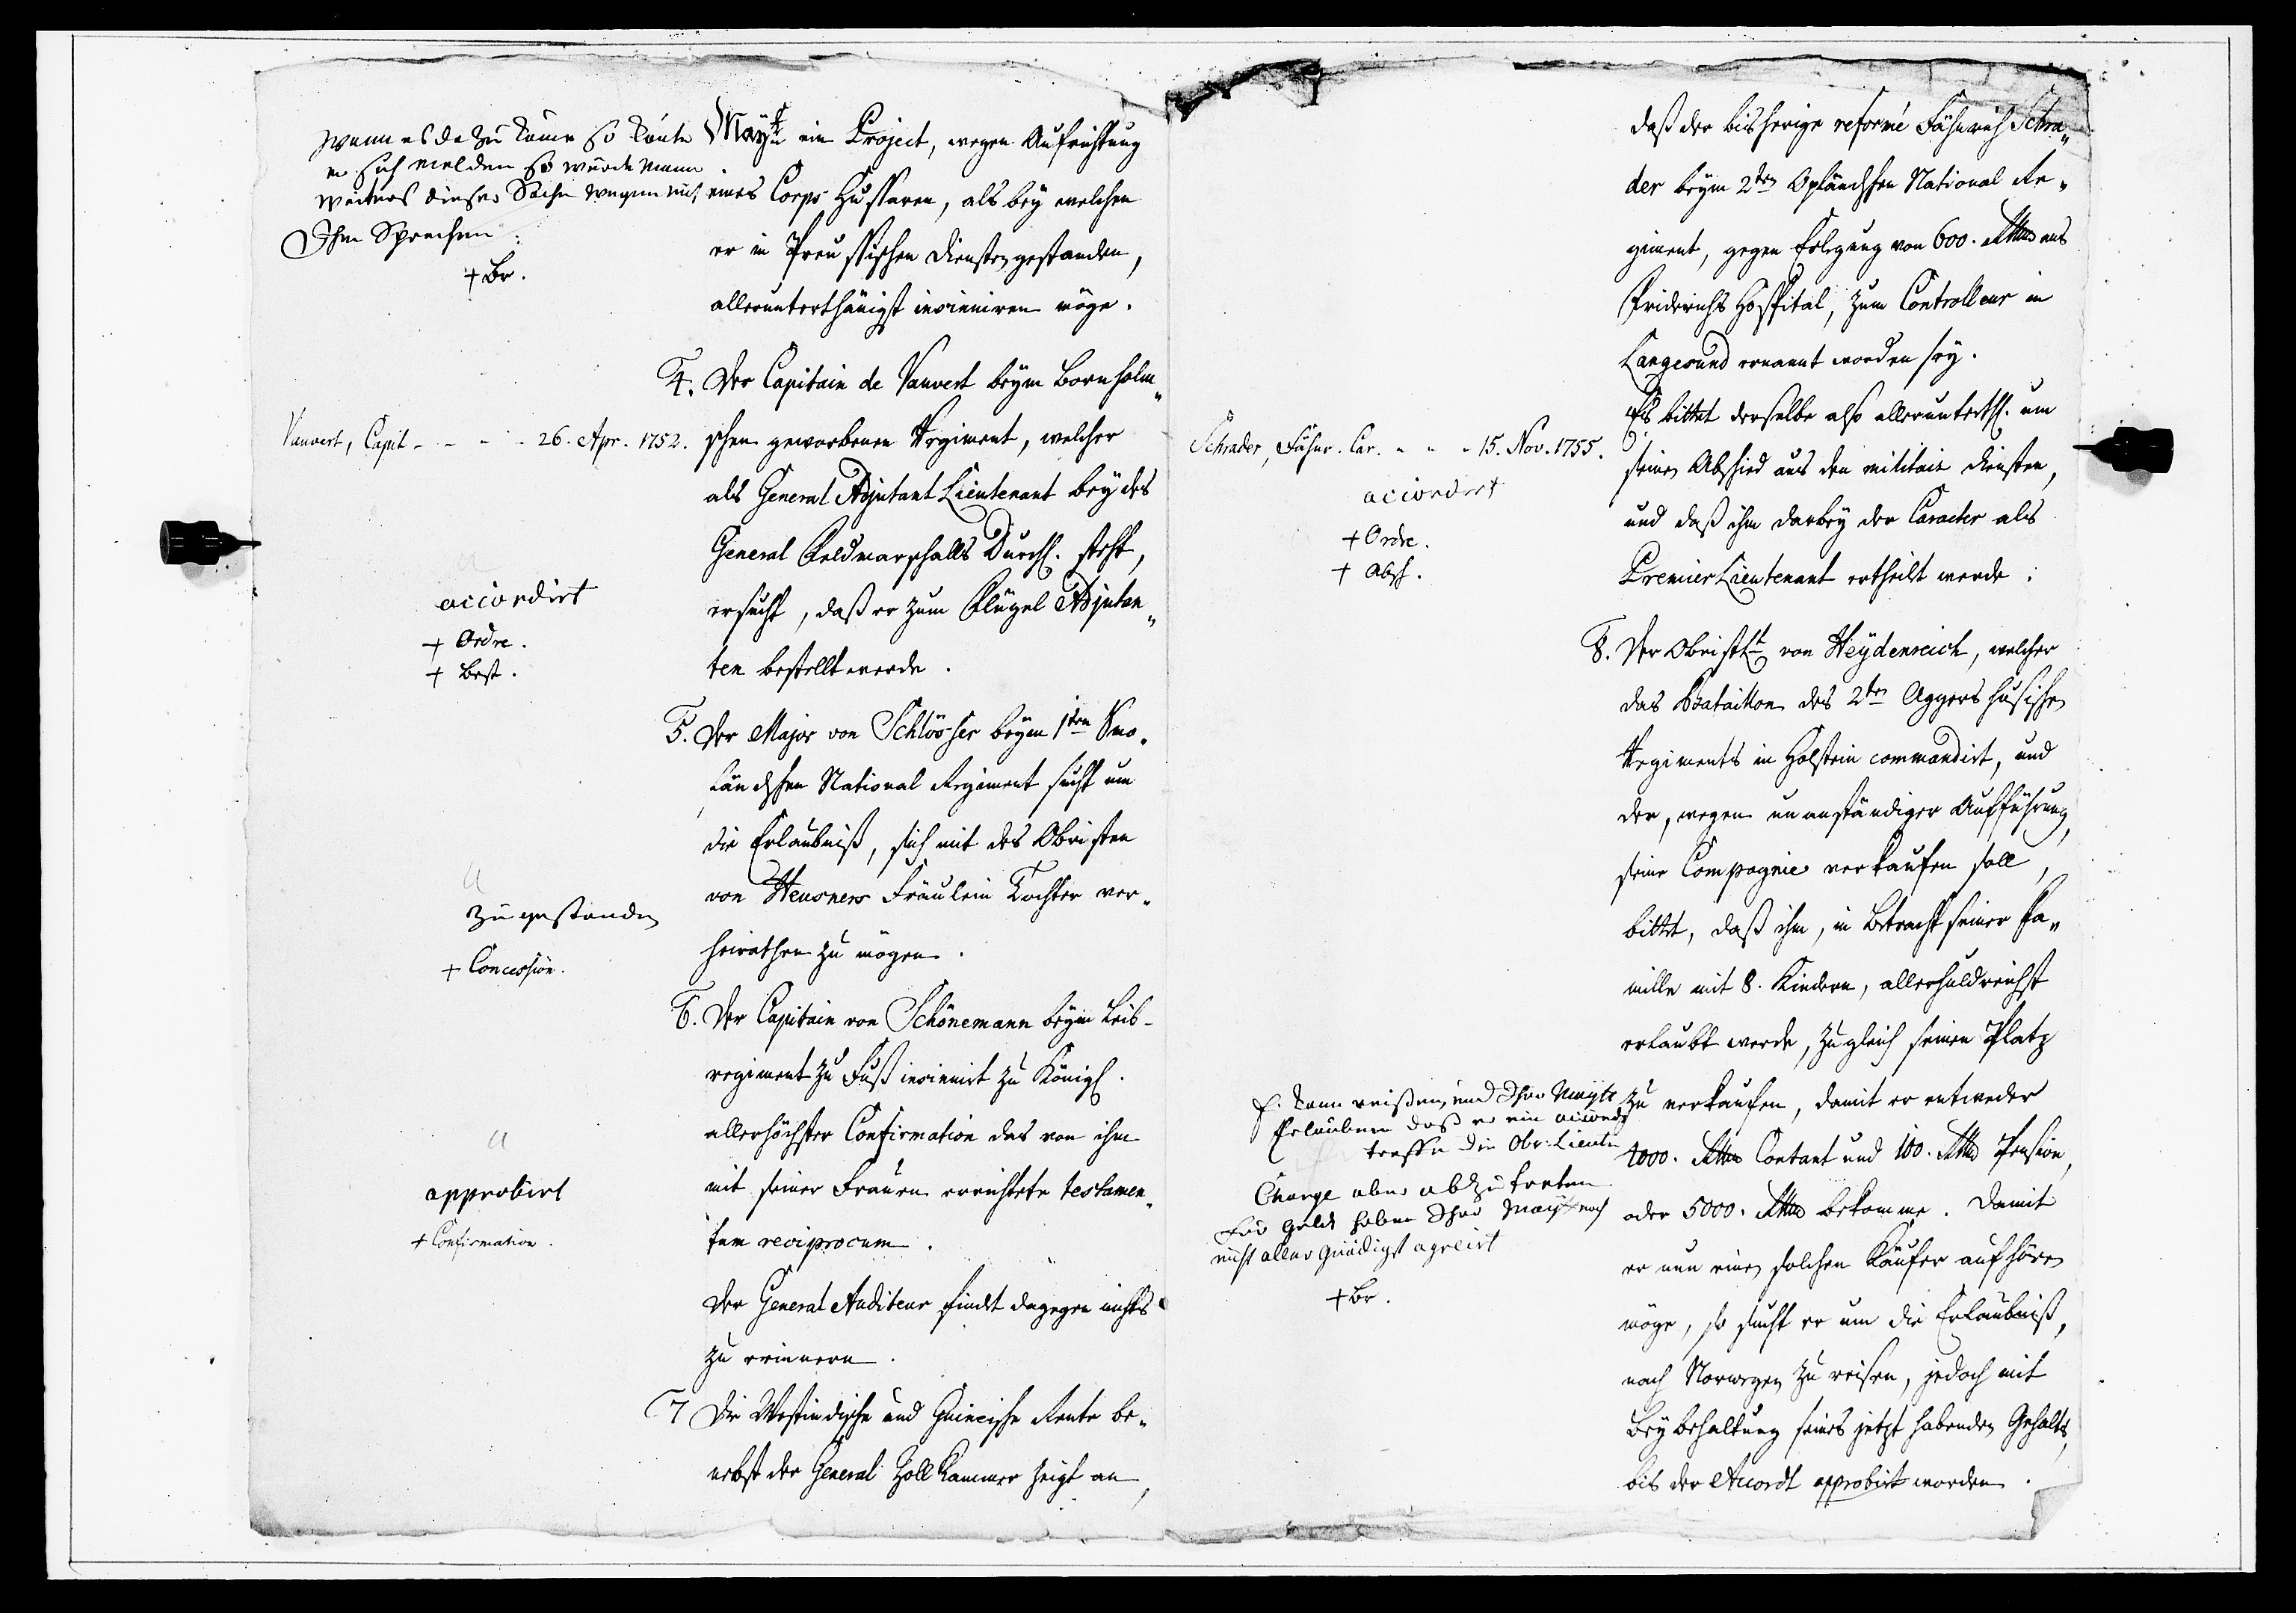 Wenn es da zu käme so könte
er sich melden so würde mann
weiters dieser Sache wegen mit
Ihm Sprechen
+ Br.
Mayt. ein Project, wegen Aufrichtung
eines Corps Hussaren, als bey welchen
er in Preussischen Diensten gestanden,
allerunterthänigst insinuiren möge.
4. Der Capitain de Vauvert beym Bornholm„
Vauvert, Capit - - - - 26. Apr. 1752.
schen geworbenen Regiment, welcher
als General Adjutant Lieutenant bey des
General Feldmarschalls Durchl. steht,
ersucht, daß er zum Flügel Adjutan„
ten bestellt werde.
accordirt
+ Ordre.
+ Best.
5. Der Major von Schlösser beym 1ten
ländschen National Regiment sucht um
die Erlaubniß, sich mit des Obristen
von Heusners Fräulein Tochter ver„
heirathen zu mögen.
zugestanden
+ Concession.
6. Der Capitain von Schönemann beym Leib-
regiment zu Fuß insinuirt zu Königl.
allerhöchster Confirmation das von ihm
mit seiner Frauen errichtete testamen„
tum reciprocum.
Der General Auditeur findet dagegen nichts
zu erinnern.
approbirt
+ Confirmation.
7 Die Westindische und Guineische Rente be„
nebst der General Zoll Kammer zeigt an,
daß der bisherige reformé Fähnrich Schra„
der beym 2ten Opländschen National Re„
giment, gegen Erlegung von 600. Rthlr ans
Friderichs Hospital, zum Controlleur in
Langesund ernannt worden sey.
Es bittet derselbe also allerunterth. um
Schrader, Fähnr. Car. - - - 15. Nov. 1755.
seinen Abschied aus den militair Diensten,
und daß ihm darbey der Caracter als
Premier Lieutenant ertheilt werde.
accordirt
+ Ordre.
+ Absch.
8. Der Obristlt von Heydenreich, welcher
das Bataillon des 2ten Aggershusischen
Regiments in Holstein commandirt, und
der, wegen unanständiger Aufführung,
seine Compagnie verkaufen soll,
bittet, daß ihm, in Betracht seiner Fa„
milie mit 8. Kindern, allerhuldreichst
erlaubt werde, zugleich seinen Platz
zu verkaufen, damit er entweder
4000. Rthlr Contant und 100. Rthlr Pension,
oder 5000. Rthlr bekomme. Damit
er nun einen solchen Käufer aufhören
möge, so sucht er um die Erlaubniß,
nach Norwegen zu reisen, jedoch mit
Beybehaltung seines jetzt habenden Gehalts,
bis der Accordt approbirt worden.
Er kann reisen, und Ihro Maytt
Erlauben daß er ein accord
treffe die Obr: Lieutn
Charge aber abzutreten
für geldt haben Ihro Maytt noch
nicht aller gnädigst agreirt
+ Br.